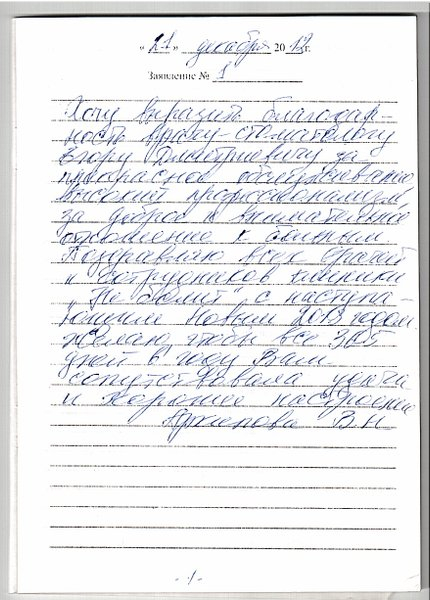 « 21 » декабря 2012 г.
Заявление № 1
Хочу выразить благодар-
ность врачу-стоматологу
Егору Дмитриевичу за
прекрасное обслуживание
высокий профессионализм,
за доброе и внимательное
отношение к больным
Поздравляю всех врачей
и сотрудников клиники
"Не болит" с наступа-
ющим Новым 2013 годом.
Желаю, чтобы все 365
дней в году Вам
сопутствовала удача
и хорошее настроение
В.Н.
-1-